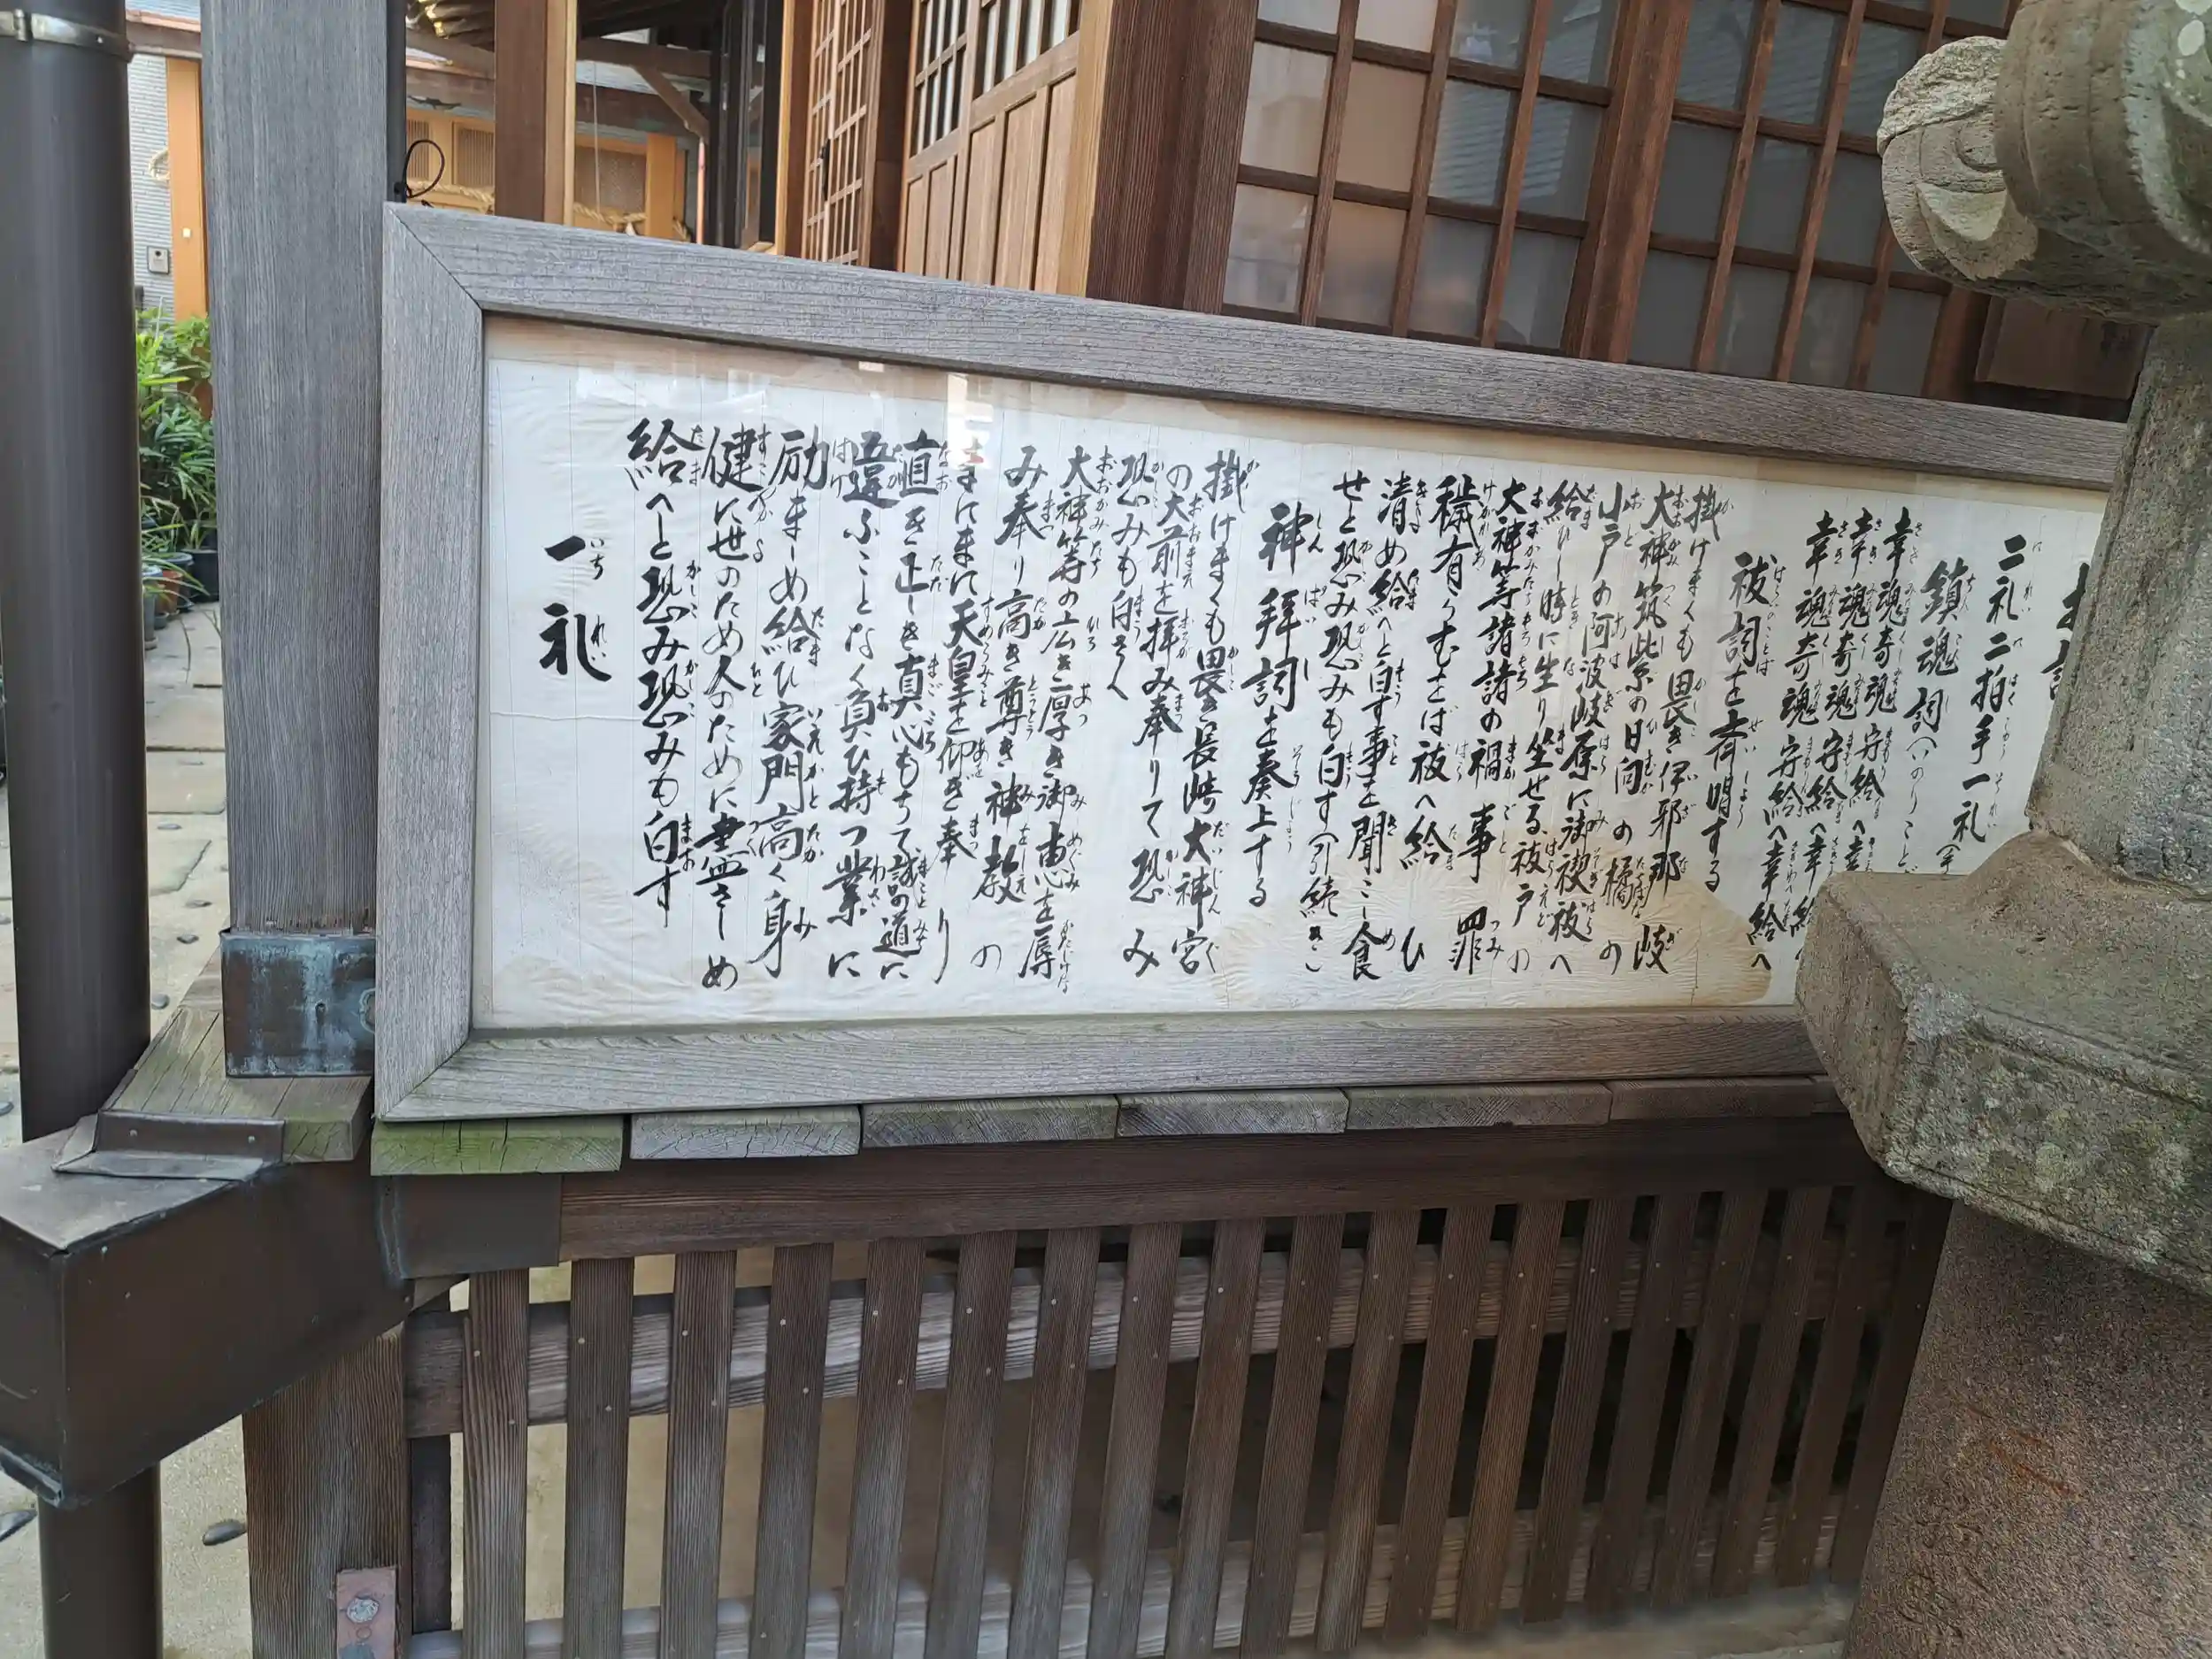 二礼二拍手一礼
鎮魂詞(いのりことば
幸魂奇魂守給へ幸
幸魂奇魂守給へ幸給
幸魂奇魂守給へ幸給へ
祓詞を斉唱する
掛けまくも畏き伊邪那岐
大神筑紫の日向の橘の
小戸の阿波岐原に御禊祓へ
給ひし時に生り坐せる祓戸の
大神等諸諸の禍事罪
穢有らむをば祓へ給ひ
清め給へと白す事を聞こし食
せと恐み恐みも白す(引続きご
神拝詞を奏上する
掛けまくも畏き長崎大神宮
の大前を拝み奉りて恐み
恐みも白さく
大神等の広き厚き御恵を辱
み奉り高き尊き神教の
まにまに天皇を仰ぎ奉り
直き正しき真心もちて誠の道に
違ふことなく負ひ持つ業に
励ましめ給ひ家門高く身
健に世のため人のために尽さしめ
給へと恐み恐みも白す
一礼